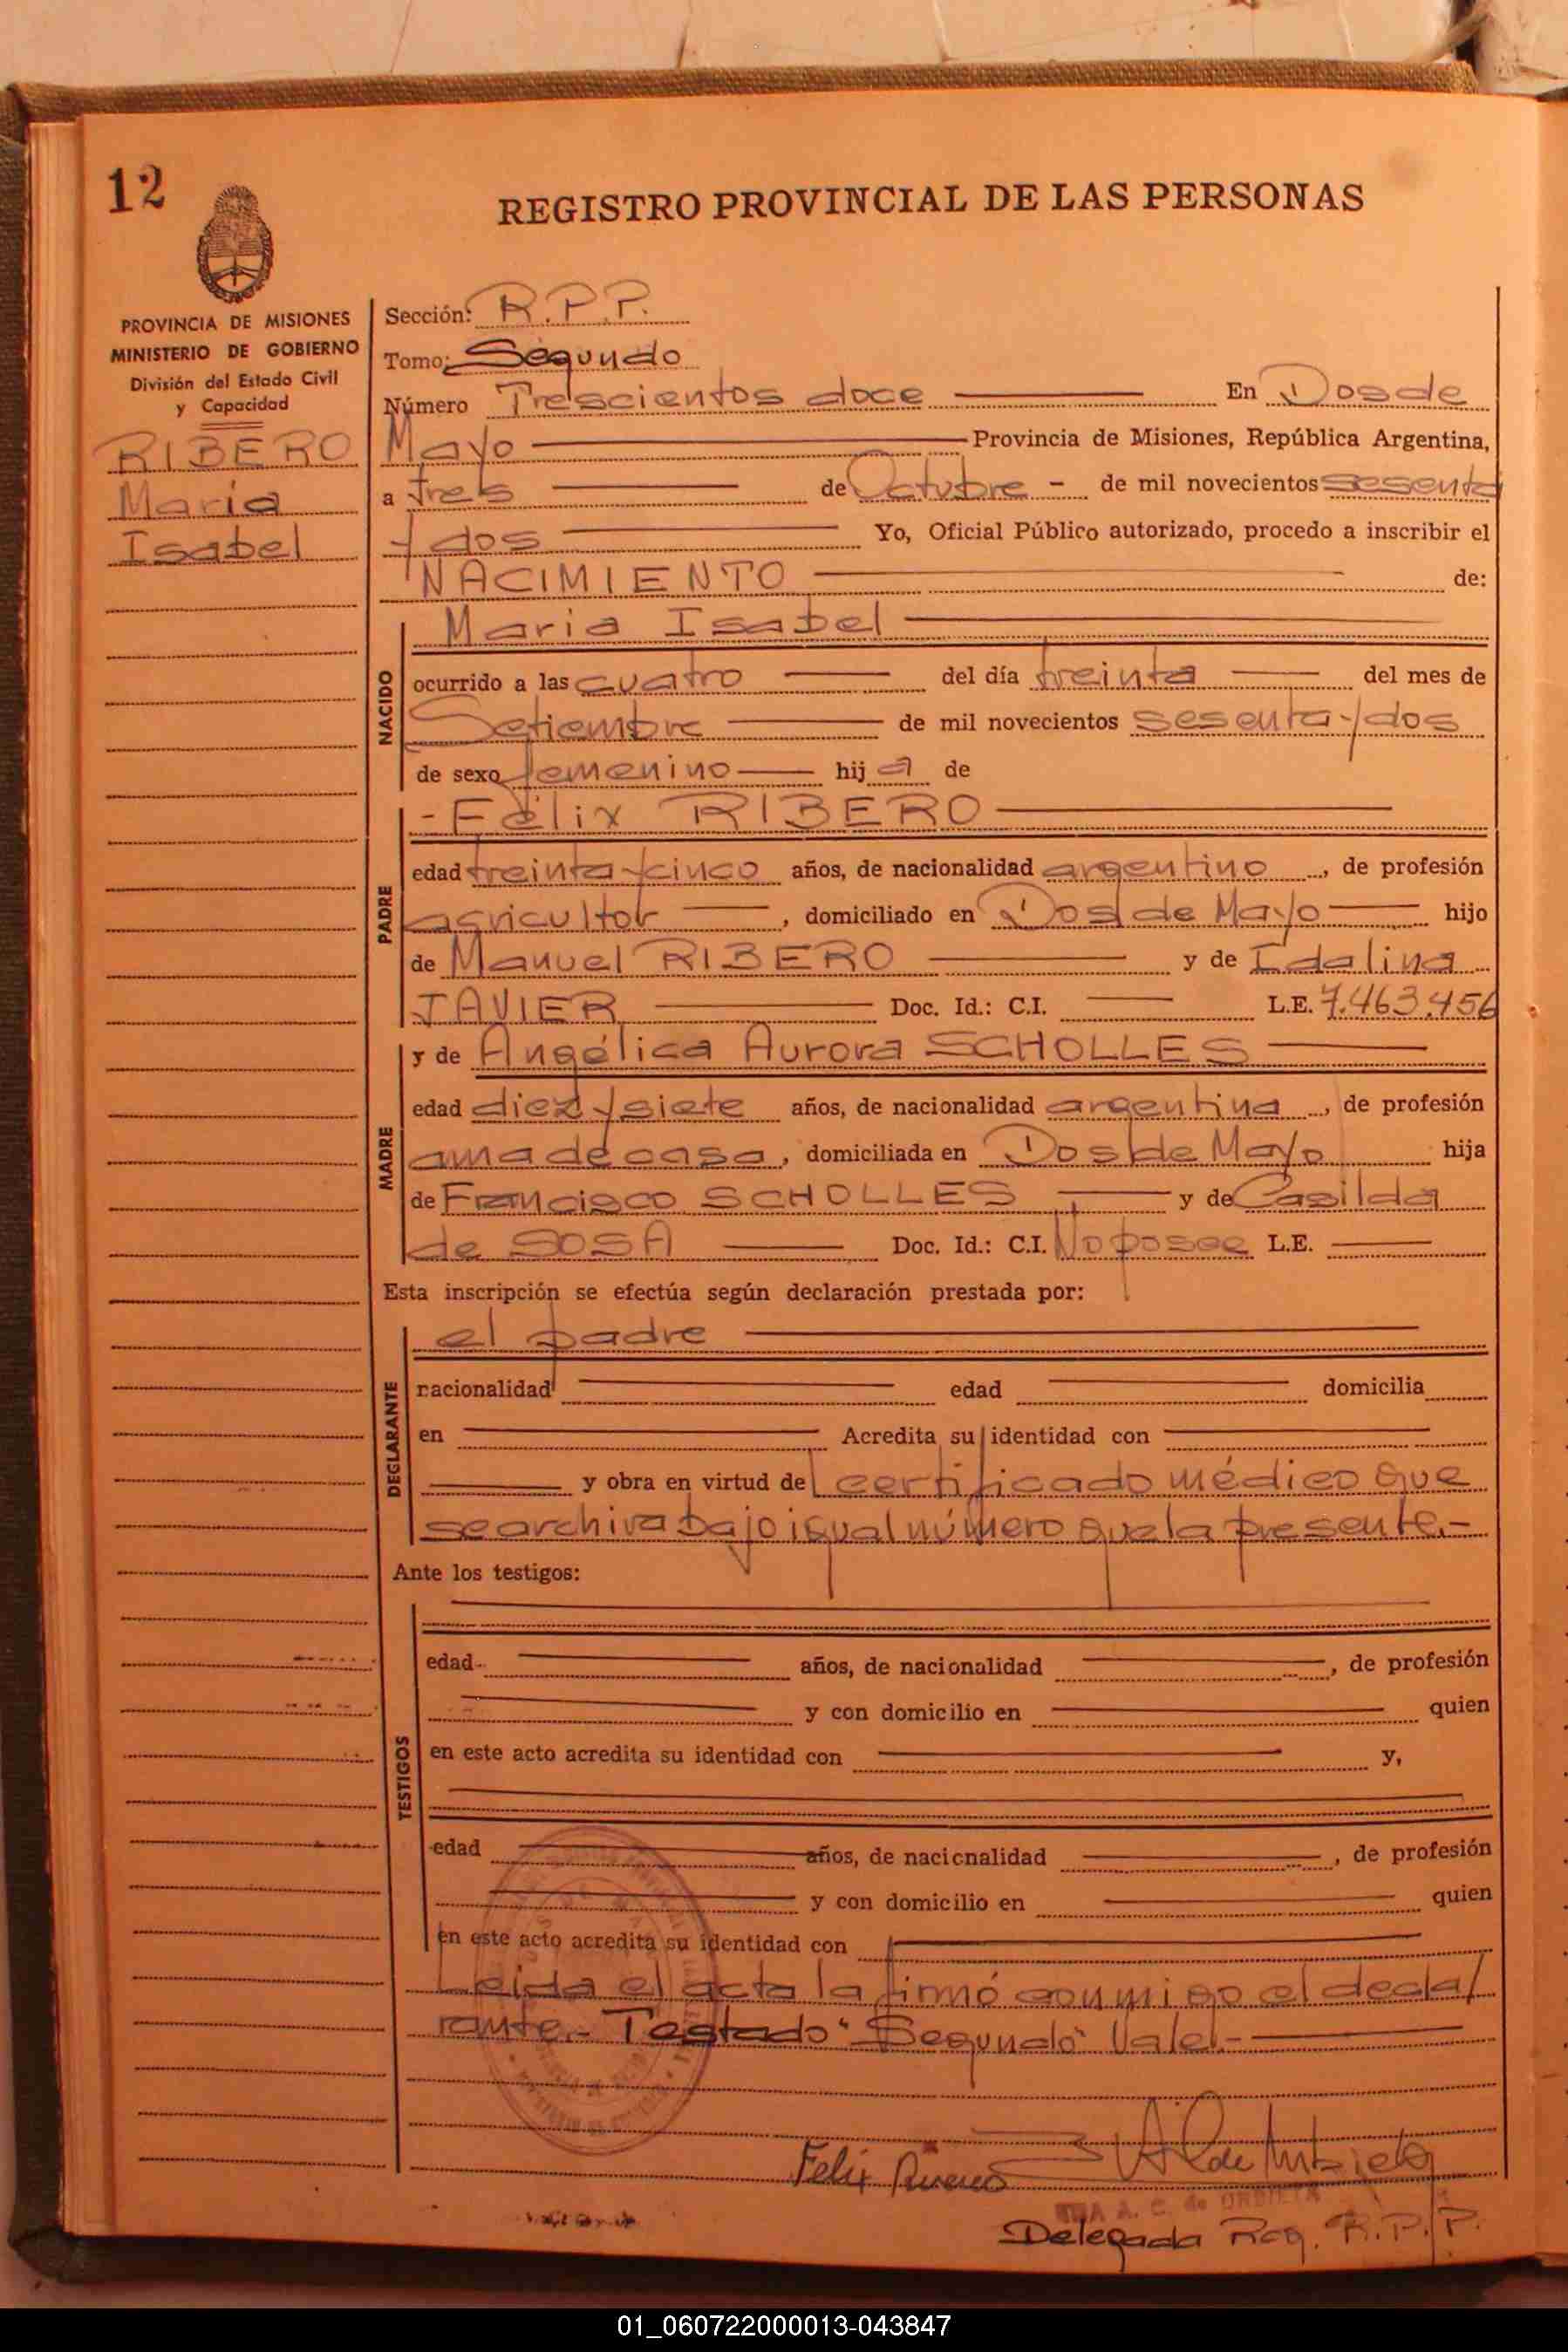 12
REGISTRO PROVINCIAL DE LAS PERSONAS
PROVINCIA DE MISIONES
MINISTERIO DE GOBIERNO
División del Estado Civil
y Capacidad
RIBERO
Maria
Isabel
Sección: R.P.P.
Tomo: Segundo
Número Trescientos doce En Dos de
Mayo Provincia de Misiones, República Argentina,
a tres de Octubre - de mil novecientos sesenta
y dos Yo, Oficial Público autorizado, procedo a inscribir el
NACIMIENTO de:
NACIDO
Maria Isabel
ocurrido a las cuatro del día treinta del mes de
Setiembre de mil novecientos sesenta y dos
de sexo femenino hij a de
PADRE
- Félix RIBERO
edad treinta y cinco años, de nacionalidad argentino, de profesión
agricultor, domiciliado en Dos de Mayo hijo
de Manuel RIBERO y de Idalina
JAVIER Doc. Id.: C.I. L.E. 7.463.456
MADRE
y de Angélica Aurora SCHOLLES
edad diez y siete años, de nacionalidad argentina, de profesión
ama de casa, domiciliada en Dos de Mayo hija
de Francisco SCHOLLES y de Casilda
de SOSA Doc. Id.: C.I. No posee L.E.
Esta inscripción se efectúa según declaración prestada por:
DECLARANTE
el padre
nacionalidad edad domicilia
en Acredita su identidad con
y obra en virtud de certificado médico que
se archiva bajo igual número que la presente.-
Ante los testigos:
TESTIGOS
edad años, de nacionalidad, de profesión
y con domicilio en quien
en este acto acredita su identidad con y,
edad años, de nacionalidad, de profesión
y con domicilio en quien
en este acto acredita su identidad con
Leida el acta la firmó conmigo el decla/
rante.- Testado "Segundo" Vale.-
Felix
A. C. de
Delegada Reg. R.P.P.
01_060722000013-043847